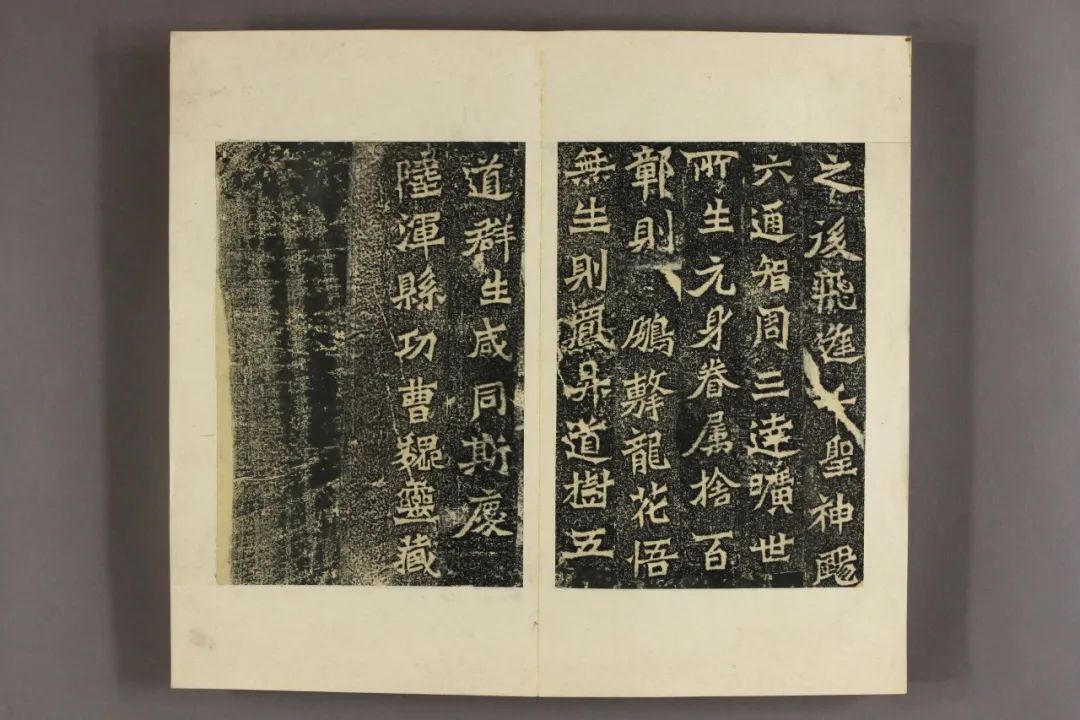 之後飛逢千聖神颺
六通智周三達曠世
所生元身眷屬捨百
鄣則鵬擊龍花悟
無生則鳳昇道樹五
道群生咸同斯慶
陸渾縣功曹魏靈藏